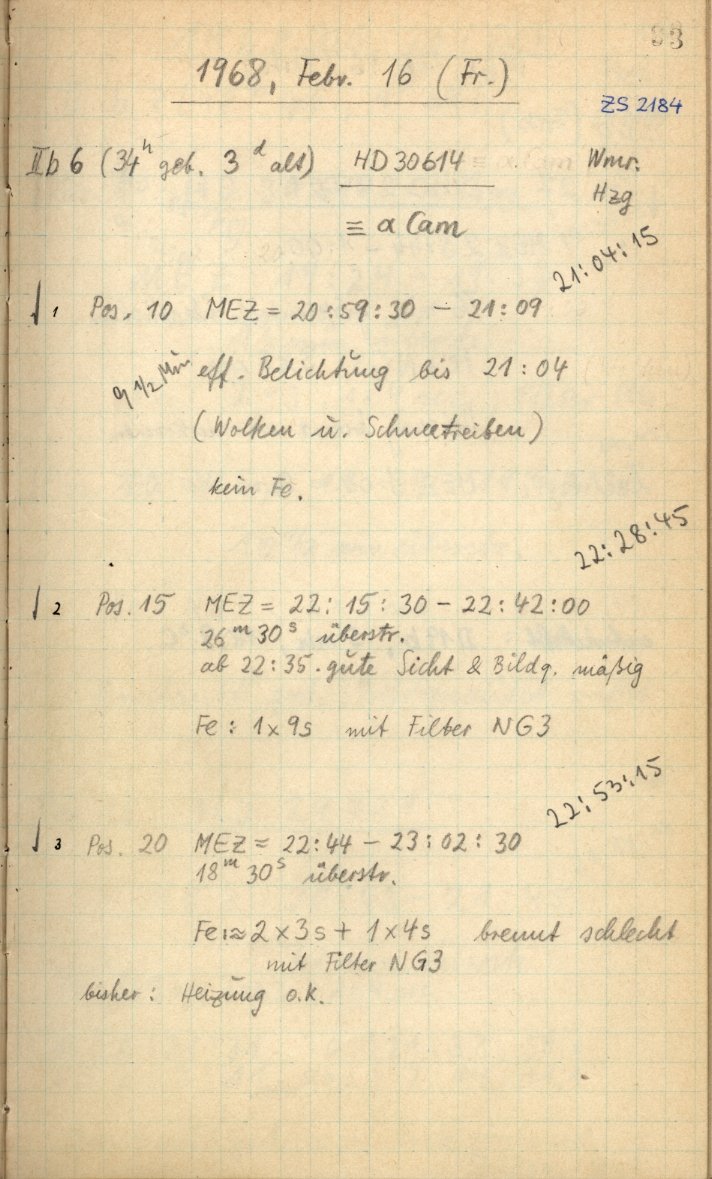 93
1968, Febr. 16 (Fr.)
ZS 2184
IIb 6 (34h geb. 3d alt) HD 30614 Wmr.
Hzg
≡ α Cam
21:04:15
1 Pos. 10 MEZ = 20:59:30 – 21:09
9 1/2 Min eff. Belichtung bis 21:04
(Wolken u. Schneetreiben)
kein Fe.
22:28:45
2 Pos. 15 MEZ = 22:15:30 – 22:42:00
26m 30s überstr.
ab 22:35. gute Sicht & Bildq. mäßig
Fe: 1x9s mit Filter NG3
22:53:15
3 Pos. 20 MEZ = 22:44 – 23:02:30
18m 30s überstr.
Fe:≈ 2x3s + 1x4s brennt schlecht
mit Filter NG3
bisher: Heizung o.k.